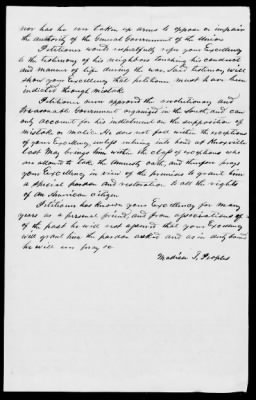 nor has he ever taken up arms to oppose or impair
the authority of the General Government of the Union
Petitioner would respectfully refer your Excellency
to the testimony of his neighbors touching his conduct
and manner of life during the war. Said testimony will
show your Excellency that petitioner must have been
indicted through mistake
Petitioner never approved the revolutionary and
treasonable Government organized in the South, and can
only account for his indictment on the supposition of
mistake or malice. He does not fall within the exceptions
of your Excellency unless entering into bond at Knoxville
last May brings him within the class of persons who
are allowed to take the Amnesty oath, and therefore prays
your Excellency in view of the premises to grant him
a special pardon and restoration to all the rights
of an American citizen
Petitioner has known your Excellency for many
years as a personal friend, and from associations of
of the past he will not apprehend that your Excellency
will grant him the pardon asked and as in duty bound
he will ever pray &c
Madison T. Peoples